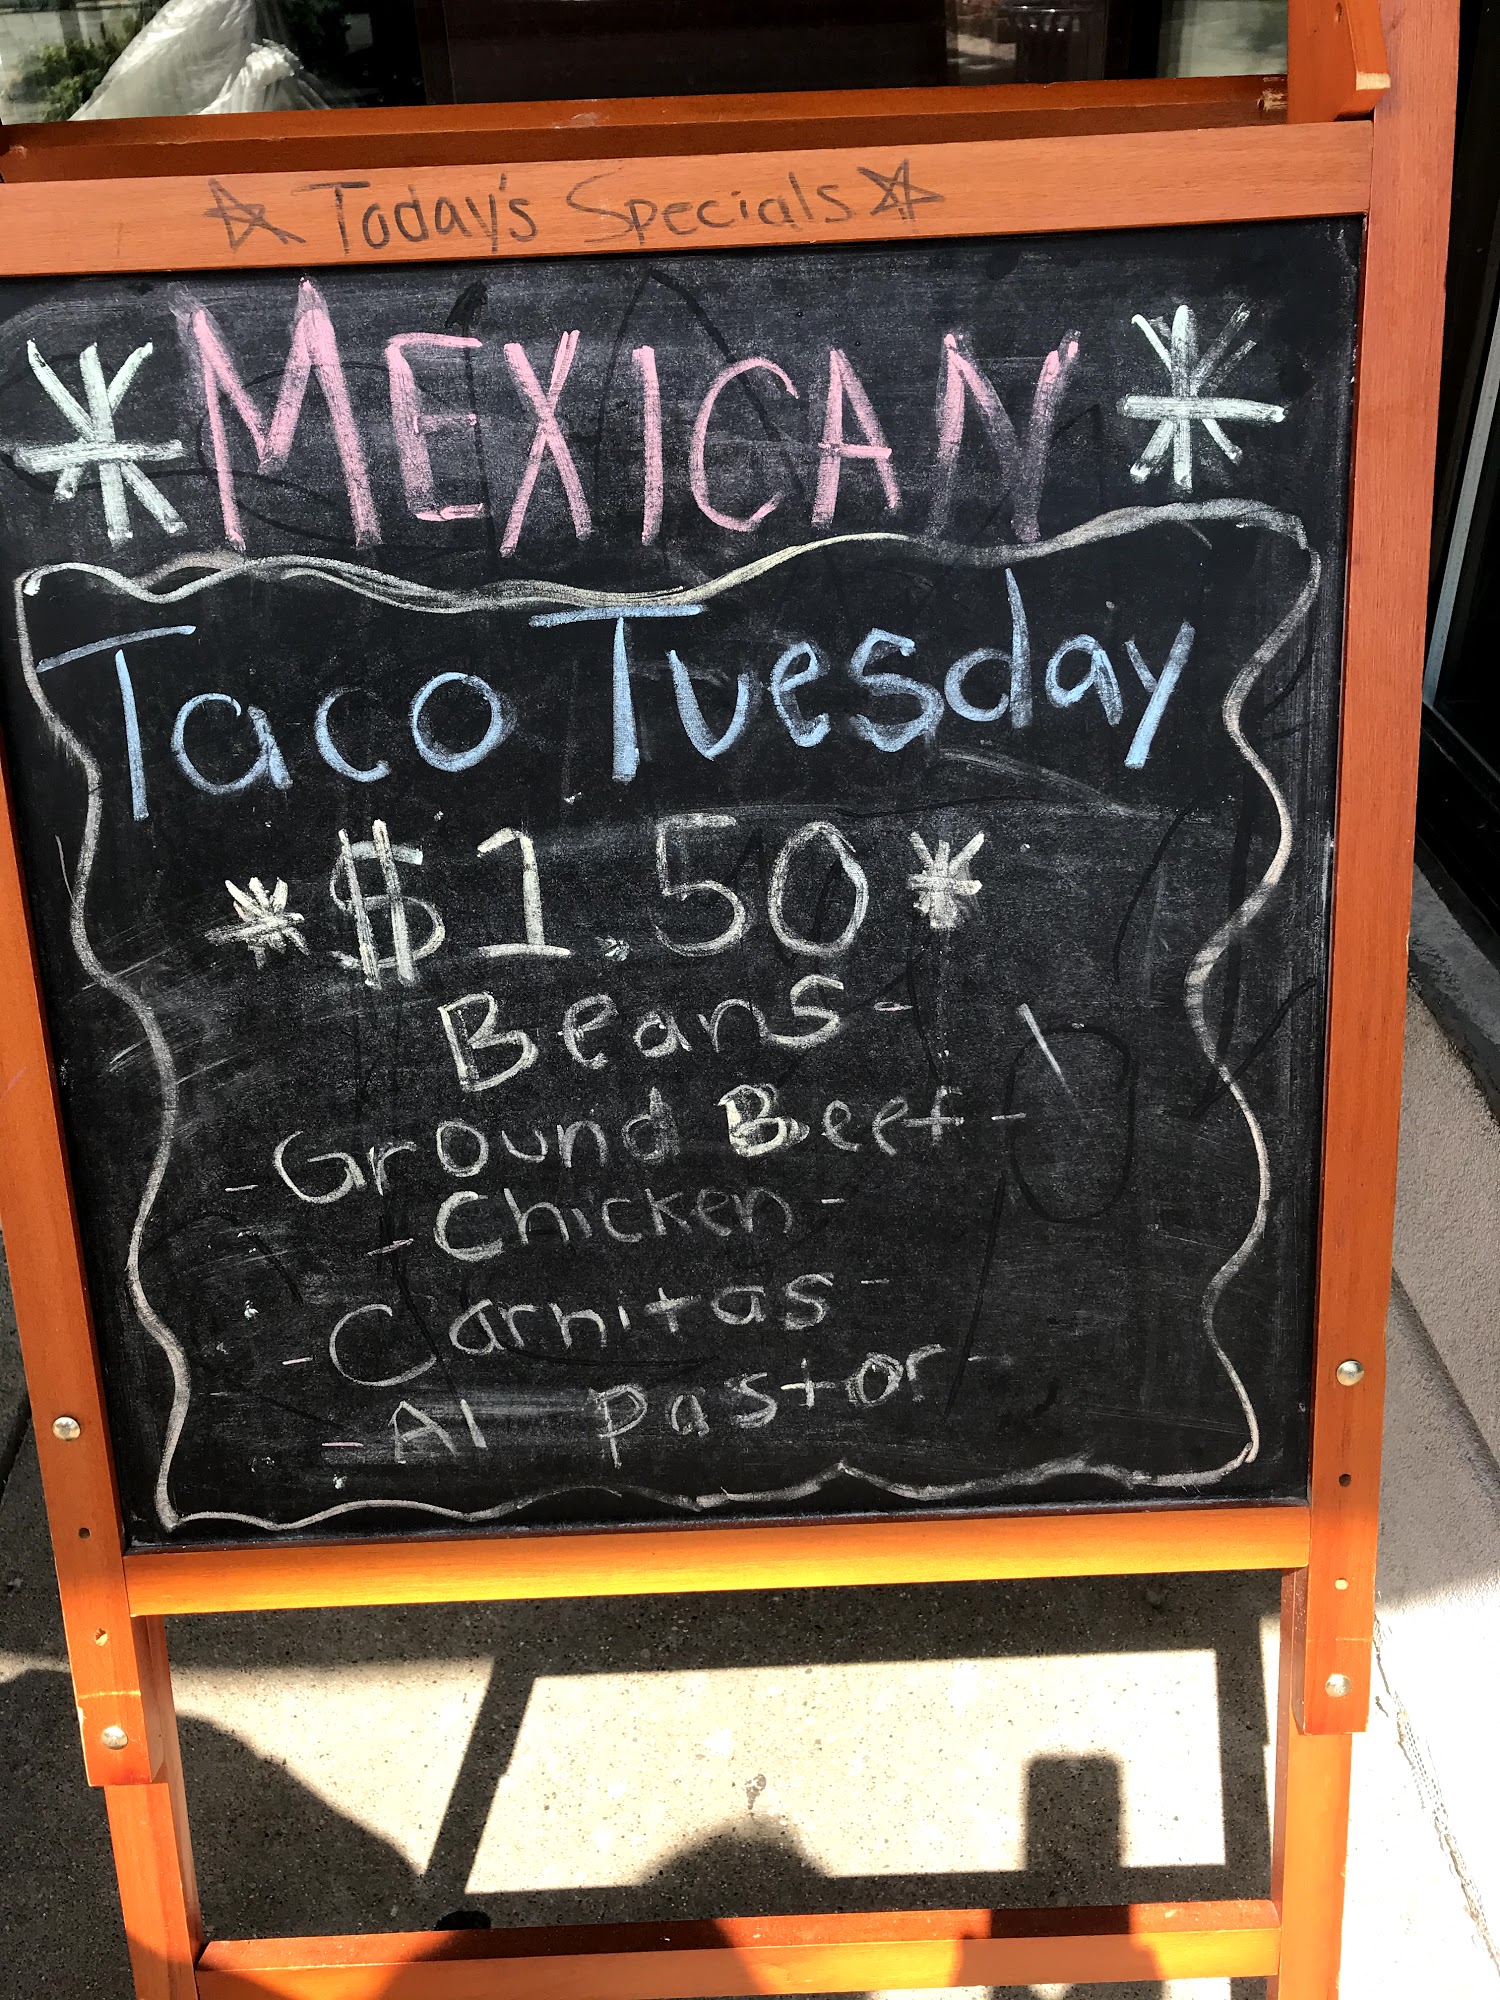 ☆ Today's Specials ☆
* MEXICAN *
Taco Tuesday
* $1.50 *
Beans -
- Ground Beef -
- Chicken -
- Carnitas -
- Al pastor -